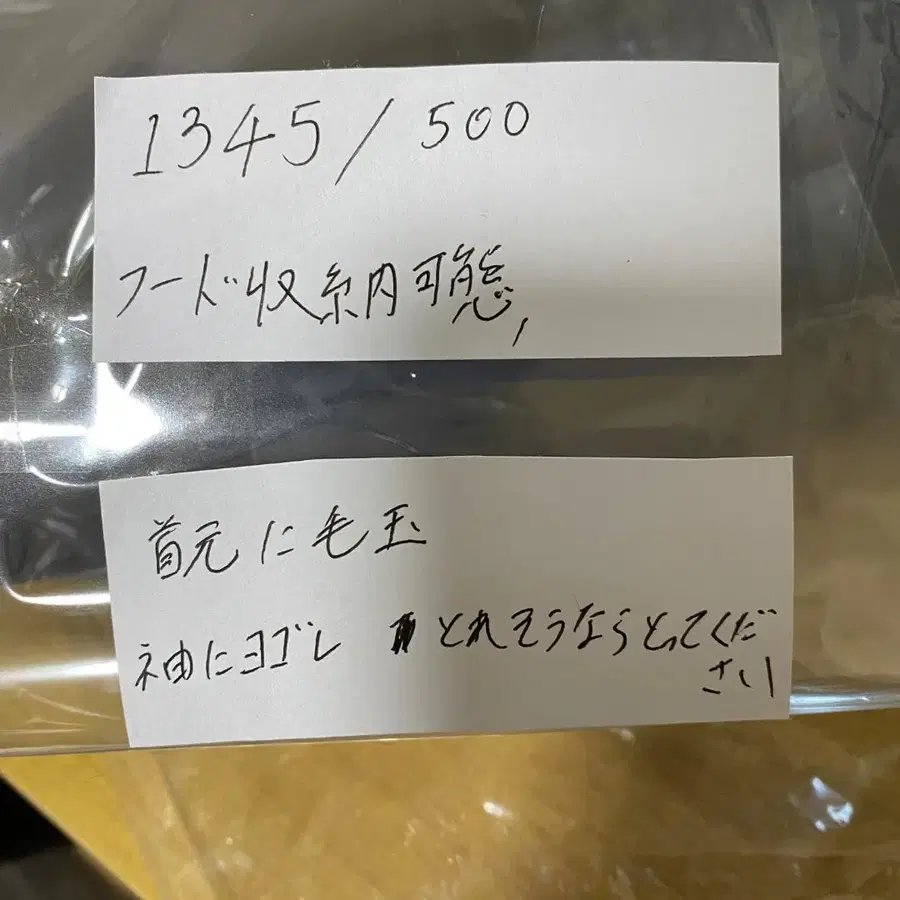 1345/500
フード収納可態,
首元に毛玉
袖にヨゴレ とれそうならとってくだ
さい